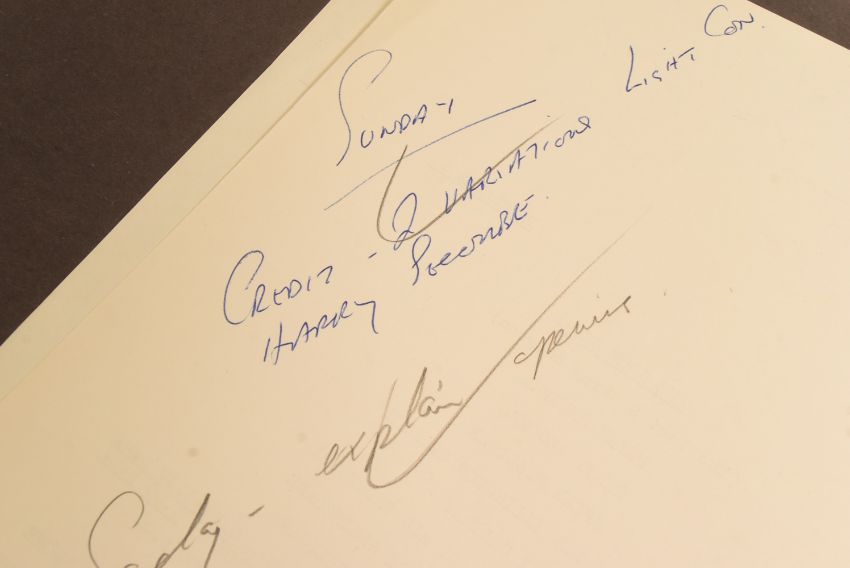 SUNDAY
CREDIT - 2 VARIATIONS LIGHT CON.
HARRY SECOMBE.
explain opening.